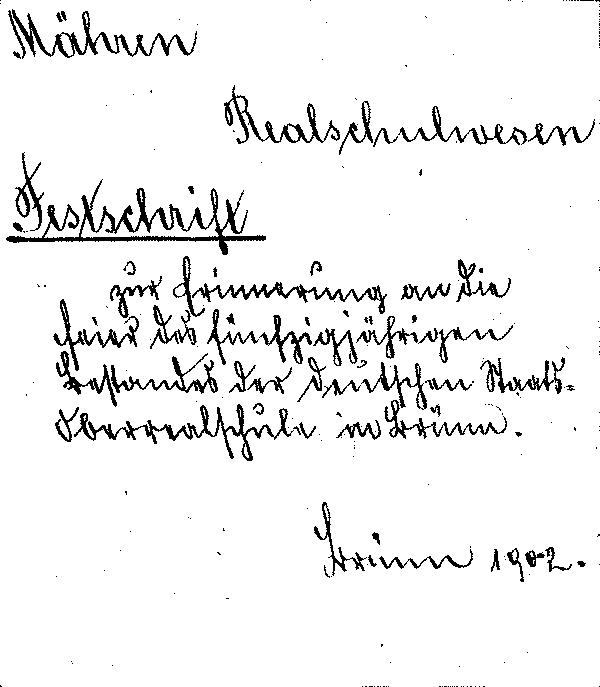 Mähren
Realschulwesen
Festschrift
zur Erinnerung an die
Feier des fünfzigjährigen
Bestandes der deutschen Staats-
Oberrealschule in Brünn.
Brünn 1902.